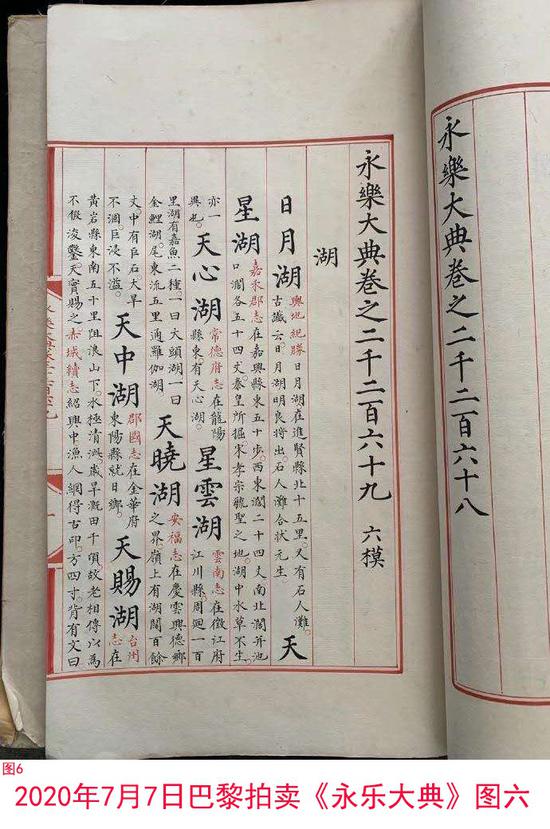 永樂大典卷之二千二百六十八
永樂大典卷之二千二百六十九 六模
湖
日月湖 輿地紀勝日月湖在進賢縣北十五里。又有石人灘。
古讖云日月湖明良將出。石人灘合狀元生 天
星湖 嘉禾郡志在嘉興縣東五十步。西東濶二十四丈南北濶并池
口濶各五十四丈。秦皇所掘。宋孝宗毓聖之地。湖中水草不生
亦一
異也。 天心湖 常德府志在龍陽
縣東。有天心湖。 星雲湖 雲南志在徵江府
江川縣。周廻一百
里湖有嘉魚二種。一曰大頭湖一曰
金鯉湖。尾東流五里通羅伽湖 天曉湖 安福志在慶雲興德鄉
之界。嶺上有湖闊百餘
丈中有巨石大旱
不涸。巨浸不溢。 天中湖 郡國志在金華府
東陽縣就日鄉。 天賜湖 台州
志在
黃岩縣東南五十里阻浪山下。水極清冽。歲旱溉田千頃。故老相傳以為
不假浚鑿。天實賜之。赤城續志紹興中漁人網得古印。方四寸。背有文曰
图6
2020年7月7日巴黎拍卖《永乐大典》图六